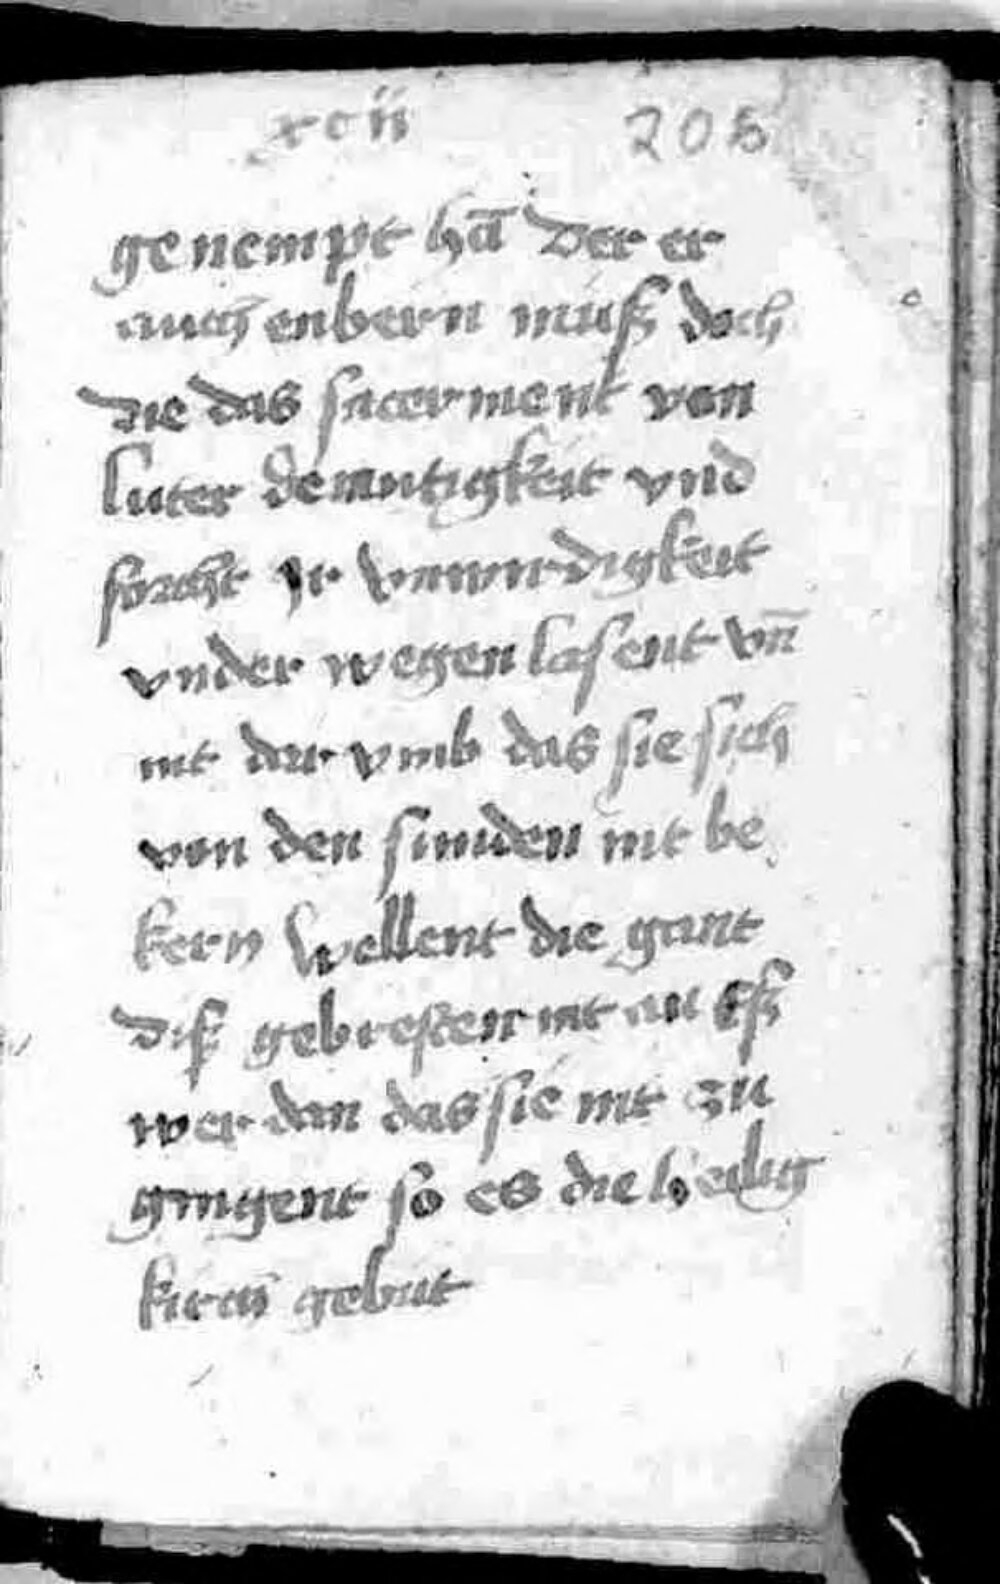 xcii 205
genempt hā Der er
auch enbern müß doch
die das sacerment von
luter demutigkeit vnd
forcht Ir vnwirdigkeit
vnder wegen lasent vn̄
nit dar vmb das sie sich
von den sunden nit be
kern wellent die gant
diß gebresten nit an Eß
wer dan das sie nit zu
gingent so es die heilig
kirch gebut